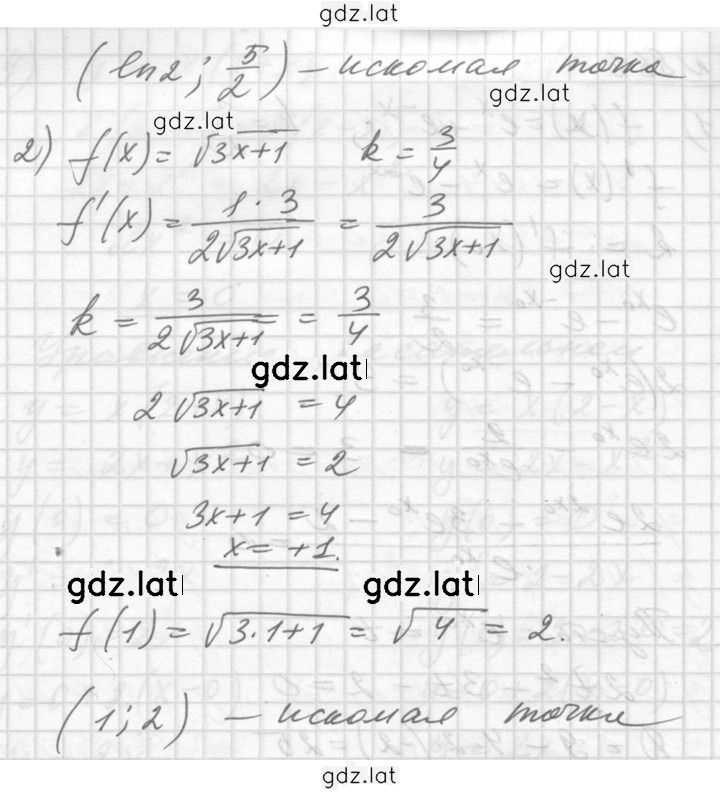 gdz.lat
(ln2; 5/2) – искомая точка
gdz.lat
gdz.lat
2) f(x) = √3x+1   k = 3/4
f'(x) = 1·3/2√3x+1 = 3/2√3x+1
gdz.lat
k = 3/2√3x+1 = 3/4
gdz.lat
2√3x+1 = 4
√3x+1 = 2
3x+1 = 4
x = +1.
gdz.lat gdz.lat
f(1) = √3·1+1 = √4 = 2.
(1; 2) – искомая точка
gdz.lat